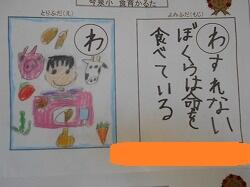 今泉小 食育かるた
とりふだ(え)
よみふだ(もじ)
わ
わすれない
ぼくらは命を
食べている